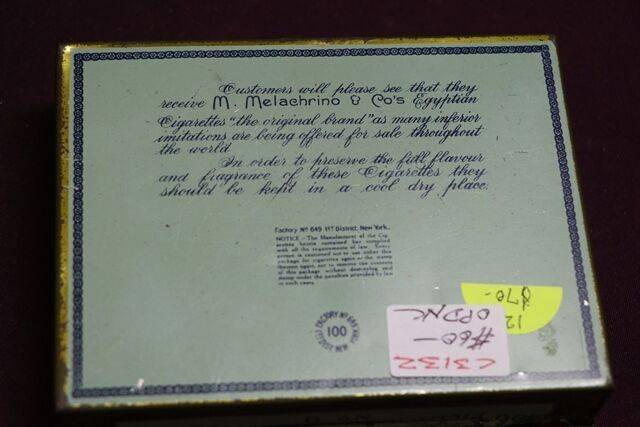 Customers will please see that they
receive M. Melachrino & Co's Egyptian
Cigarettes "the original brand" as many inferior
imitations are being offered for sale throughout
the world
In order to preserve the full flavour
and fragrance of these Cigarettes they
should be kept in a cool dry place.
Factory No 649 1st District, New York.
NOTICE - The Manufacturer of the Cig-
arettes herein contained has complied
with all the requirements of law. Every
person is cautioned not to use either this
package for cigarettes again or the stamp
thereon again, nor to remove the contents
of this package without destroying said
stamp under the penalties provided by law
in such cases.
FACTORY No 649
100
1st DIST. NEW YORK
12
$70-
OPDNC
#60-
C3132